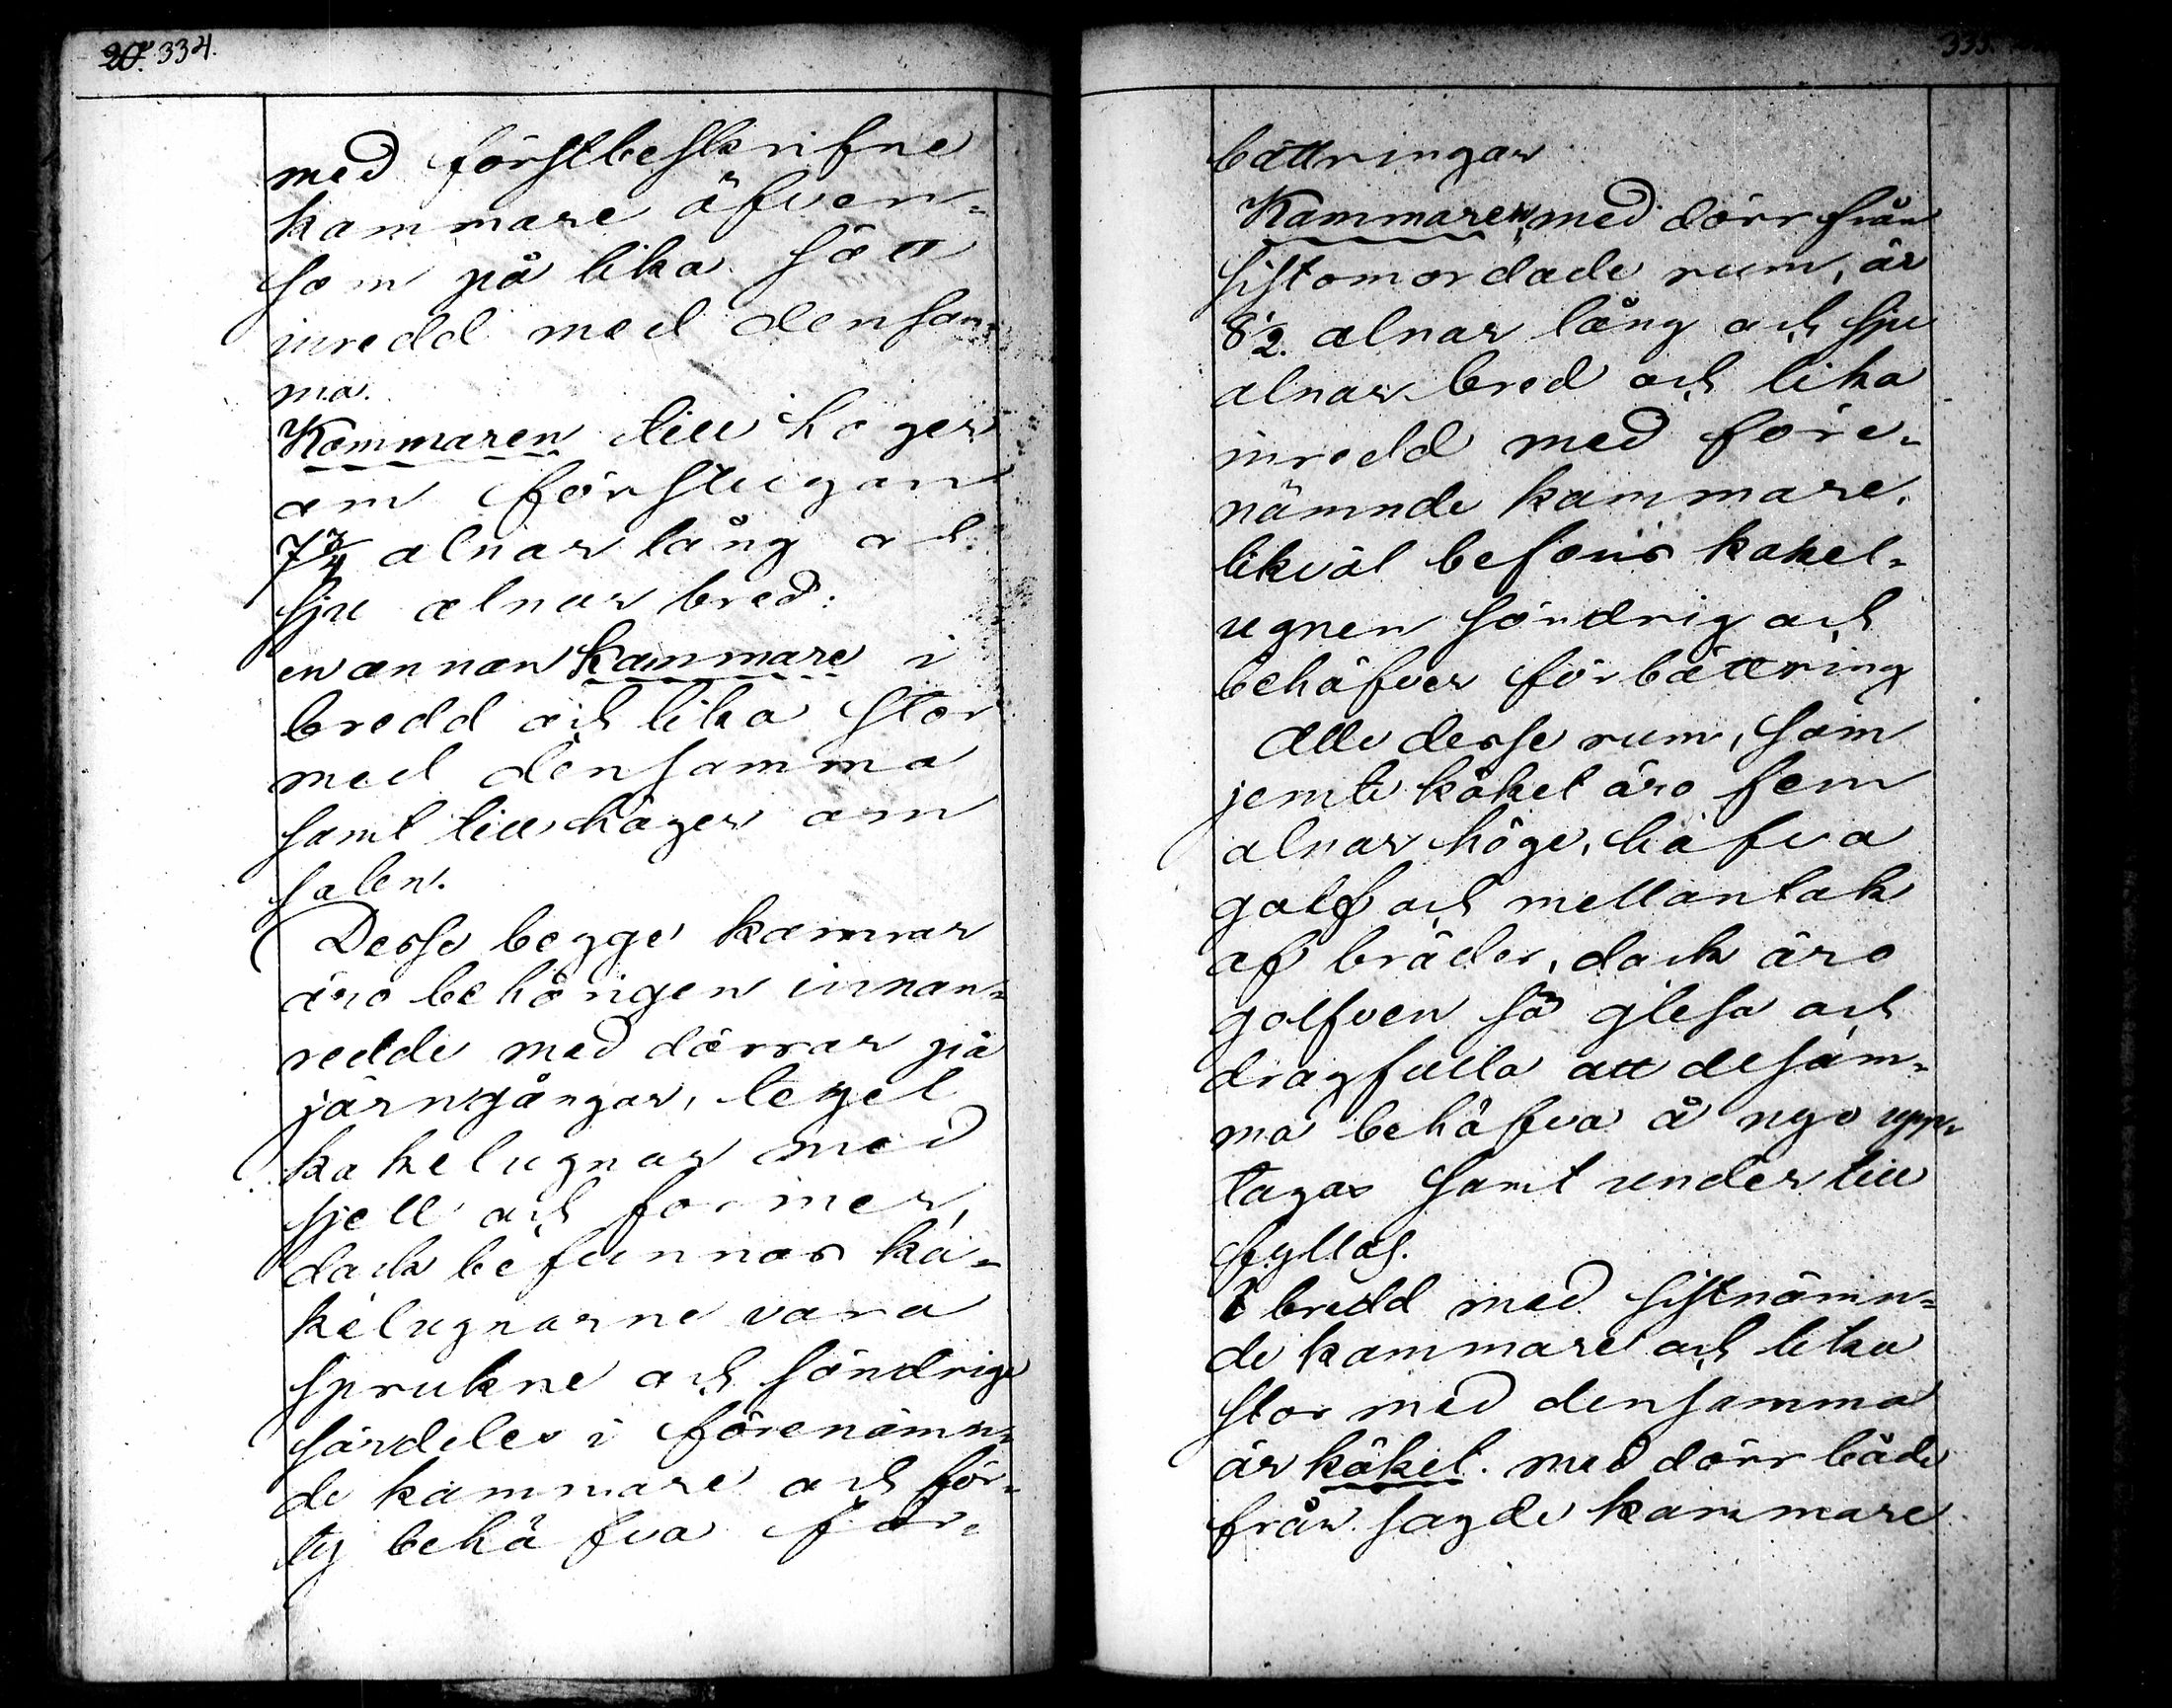 20. 334.
med förstbeskrifne
kammare äfven=
som på lika sätt
inredd med densam=
ma.
Kammaren till höger
om förstugan
7 3/4 alnar lång och
sju alnar bred:
en annan kammare i
bredd och lika stor
med densamma
samt till höger om
salen.
Desse begge kamrar
äro behörigen innan=
redde med dörrar på
järngångar, tegel
kakelugnar med
spjell och former,
dock befunnos ka=
kelugnarne vara
sprukne och söndrige
särdeles i förenämn=
de kammare och för=
ty behäfva för=
335.
bättringar
Kammaren, med dörr från
sistomordade rum, är
8 1/2. alnar lång och sju
alnar bred och lika
inredd med före=
nämnde kammare,
likväl befans kakel=
ugnen söndrig och
behäfver förbättring
Alle desse rum, som
jemte köket äro fem
alnar höge, häfva
golf och mellantak
af bräder, dock äro
golfven så glesa och
dragfulla att desam=
ma behäfva å nyo upp=
tagas samt under till
fyllas.
I bredd med sistnämn=
de kammare och lika
stor med densamma
är köket. med dörr både
från sagde kammare